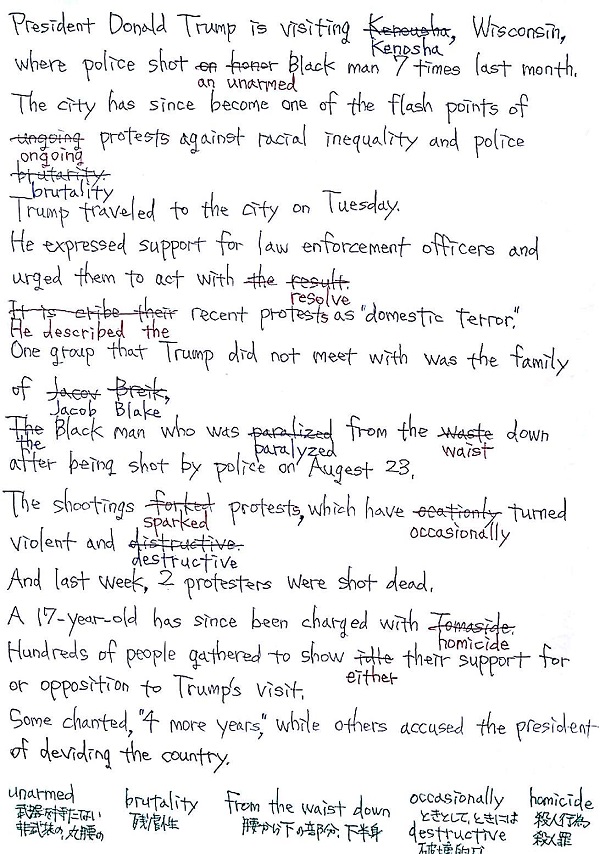 President Donald Trump is visiting Kenousha, Wisconsin,
Kenosha
where police shot on honor Black man 7 times last month.
an unarmed
The city has since become one of the flash points of
ungoing protests against racial inequality and police
ongoing
brutarity.
brutality
Trump traveled to the city on Tuesday.
He expressed support for law enforcement officers and
urged them to act with the result.
resolve
It is cribe their recent protests as "domestic terror."
He described the
One group that Trump did not meet with was the family
of Jacov Breik,
Jacob Blake
The Black man who was paralized from the waste down
the paralyzed waist
after being shot by police on Augest 23.
The shootings forked protests, which have ocationly turned
sparked occasionally
violent and distructive.
destructive
And last week, 2 protesters were shot dead.
A 17-year-old has since been charged with Tomaside.
homicide
Hundreds of people gathered to show idle their support for
either
or opposition to Trump's visit.
Some chanted, "4 more years," while others accused the president
of deviding the country.
unarmed brutality from the waist down occasionally homicide
武器を持たない 残虐性 腰から下の部分, 下半身 ときとして, ときには 殺人行為
非武装の, 丸腰の destructive 殺人罪